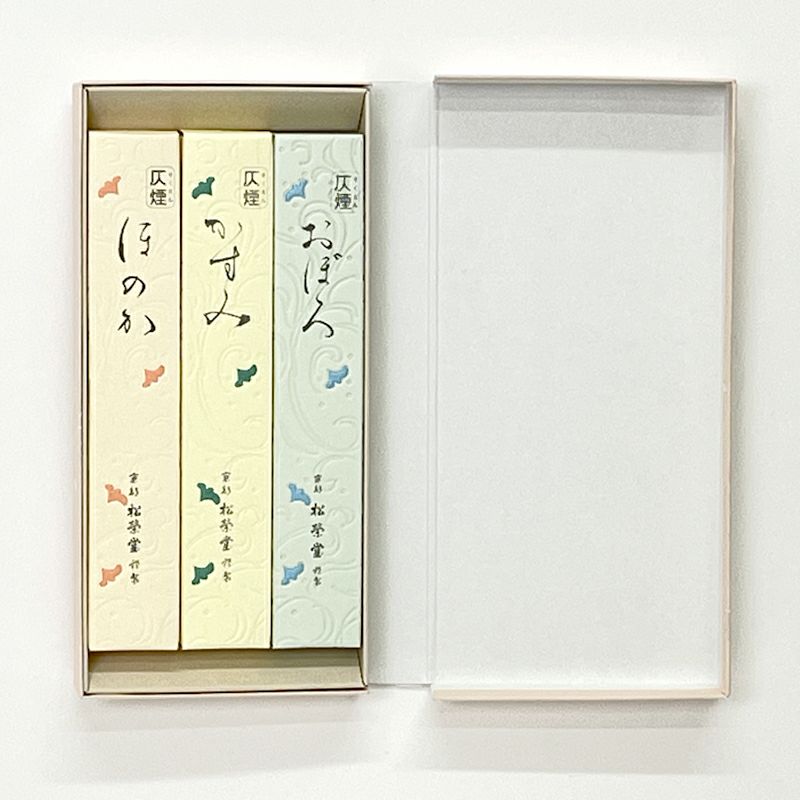 仄煙
そくえん
ほのか
京都 松榮堂 謹製
仄煙
そくえん
かすみ
京都 松榮堂 謹製
仄煙
そくえん
おぼろ
京都 松榮堂 謹製